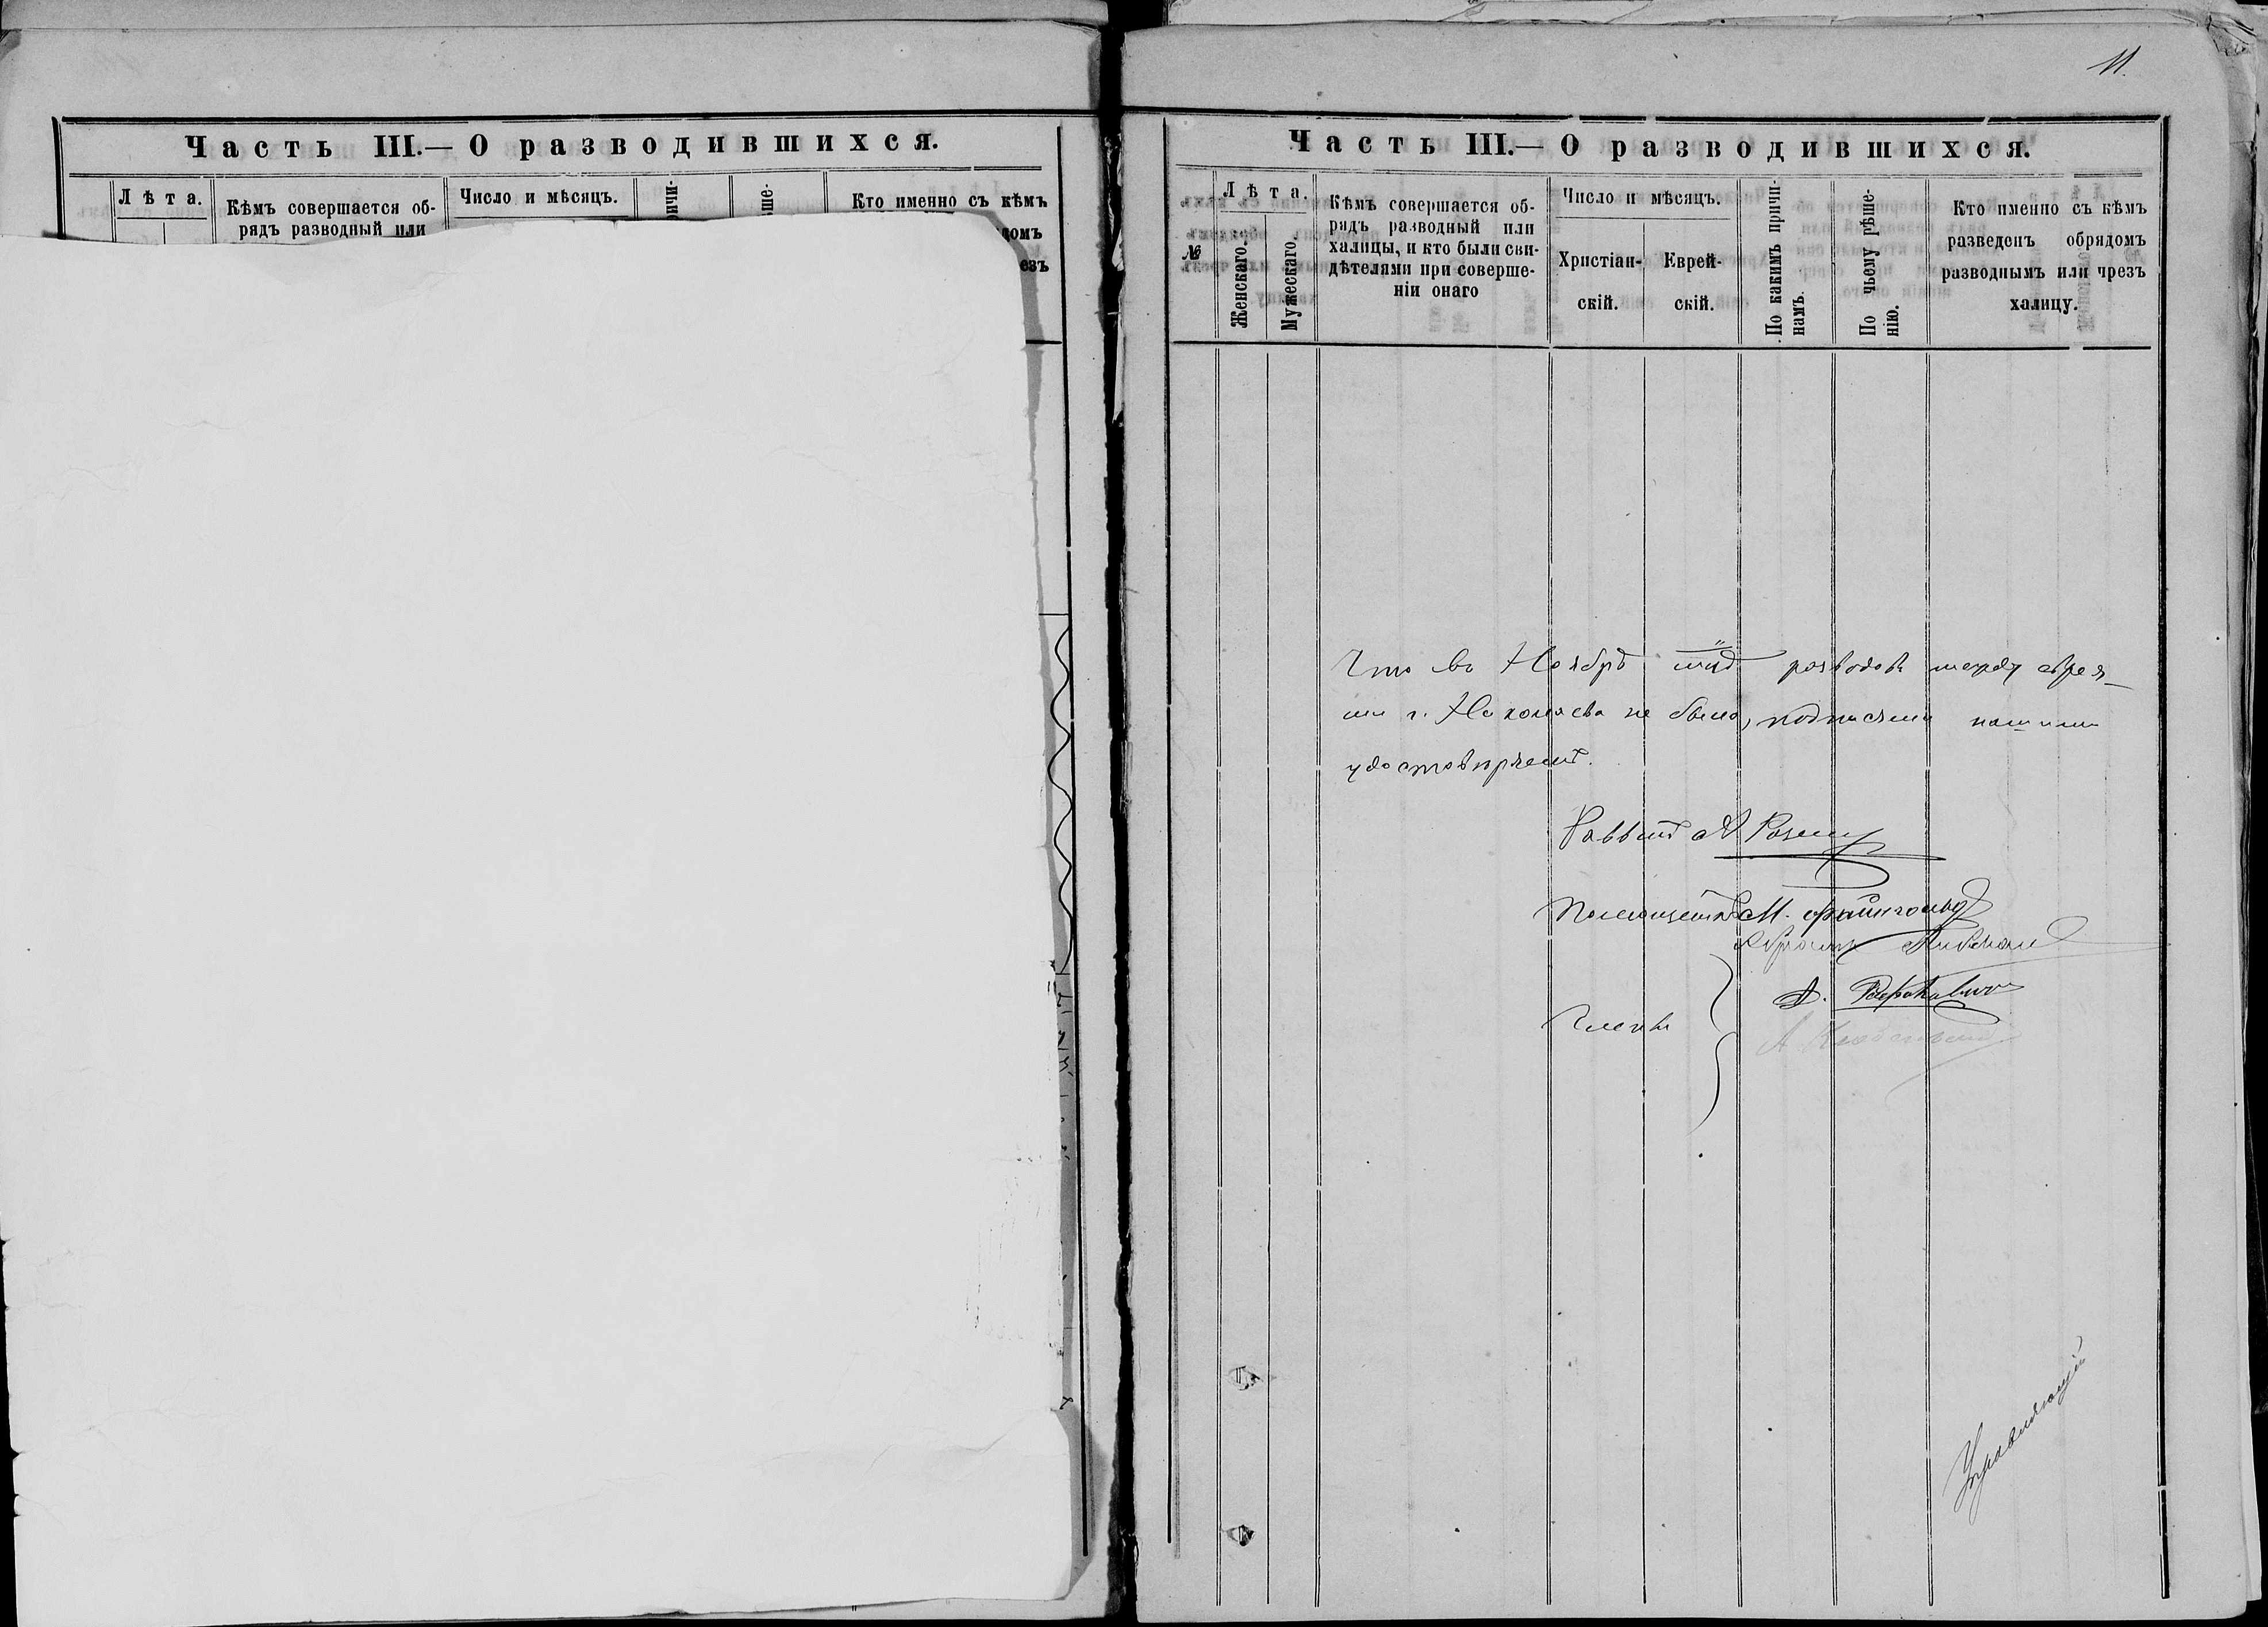 Часть III.— О разводившихся.
Лѣта.
Кѣмъ совершается об-
рядъ разводный или
Число и мѣсяцъ.
ричи-
ѣше-
Кто именно съ кѣмъ
домъ
езъ
11.
Часть III.— О разводившихся.
№
Лѣта.
Женскаго.
Мужескаго.
Кѣмъ совершается об-
рядъ разводный или
халицы, и кто были сви-
дѣтелями при соверше-
ніи онаго
Число и мѣсяцъ.
Христіан-
скій.
Еврей-
скій.
По какимъ причи-
намъ.
По чьему рѣше-
нію.
Кто именно съ кѣмъ
разведенъ обрядомъ
разводнымъ или чрезъ
халицу.
Что въ Ноябрѣ м-цѣ разводовъ между еврея-
ми г. Николаева не было, подписями нашими
удостовѣряемъ.
Раввинъ
Помощникъ М. Файнгольд
Члены
А. Рафалович
Управляющій